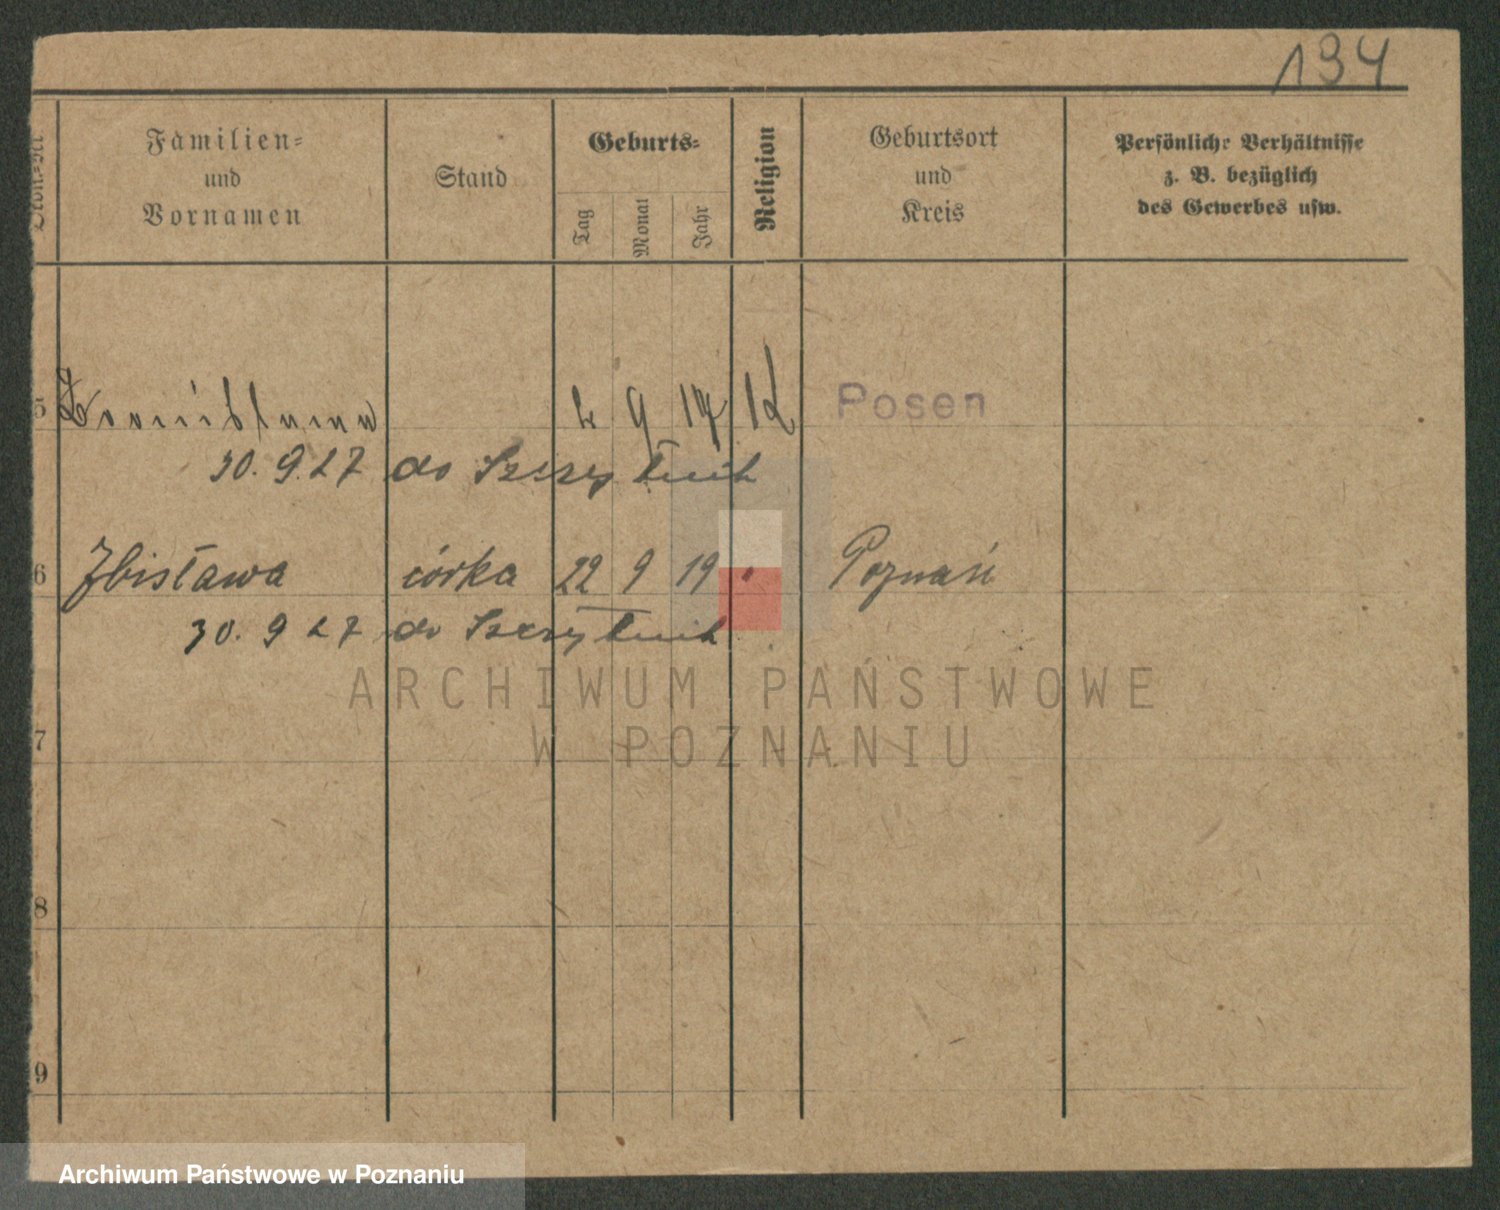 194
Ordn.-Nr.
Familien=
und
Vornamen
Stand
Geburts=
Tag
Monat
Jahr
Religion
Geburtsort
und
Kreis
Persönliche Verhältnisse
z. B. bezüglich
des Gewerbes usw.
5 2 9 17 K Posen
30. 9. 27 do Szczytnik
6 Zbisława córka 22 9 19 " Poznań
30. 9 27 do Szczytnik
ARCHIWUM PAŃSTWOWE
W POZNANIU
7
8
9
Archiwum Państwowe w Poznaniu